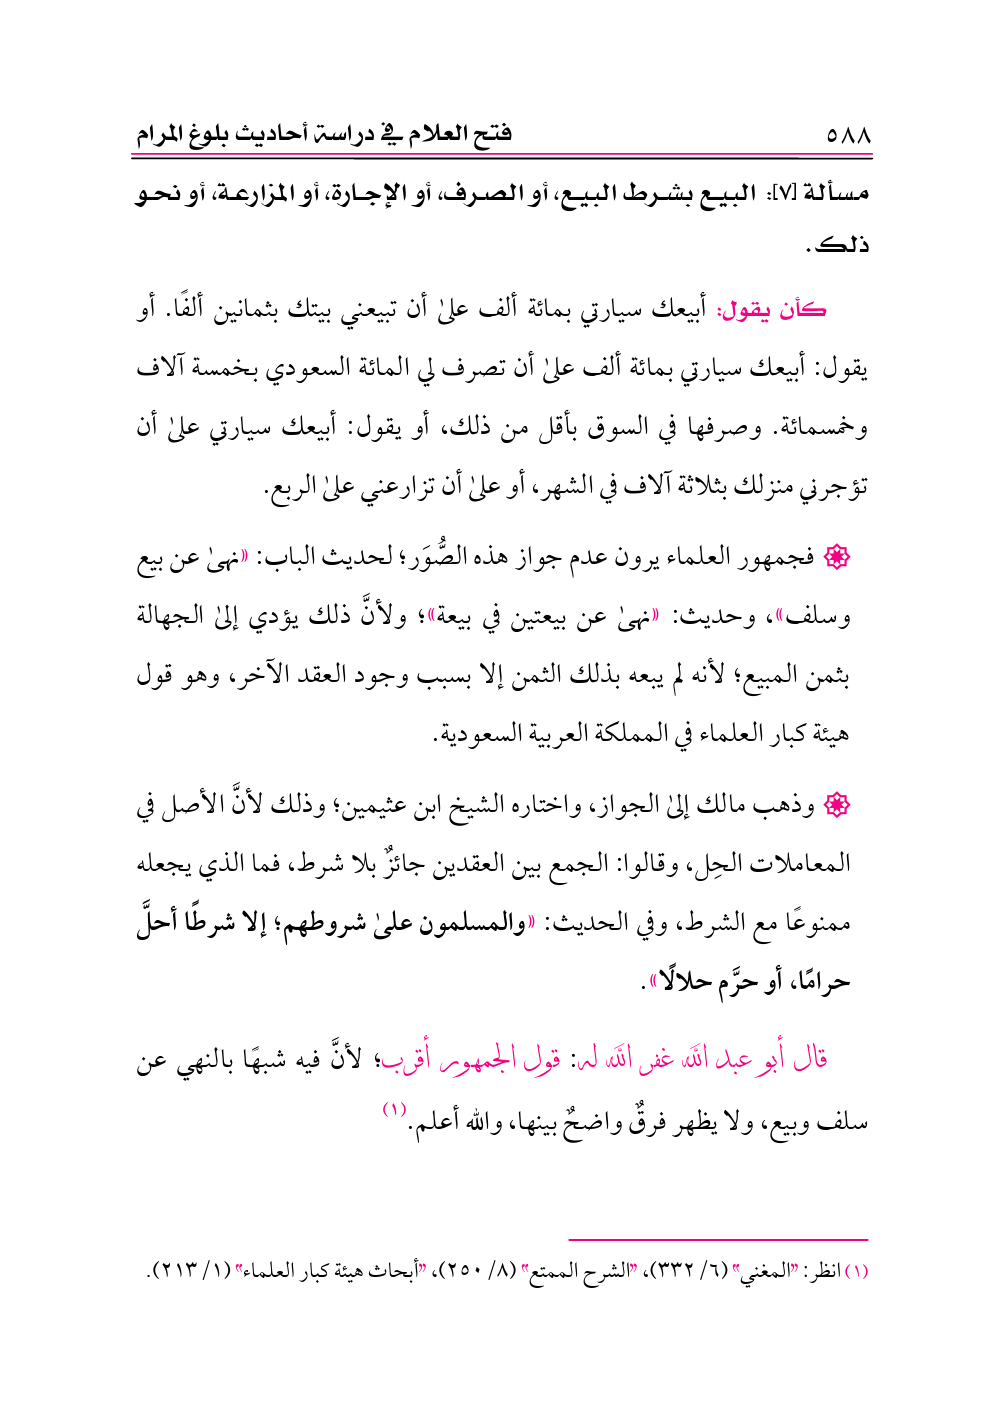 ٥٨٨ فتح العلام في دراسة أحاديث بلوغ المرام
مسألة [٧]: البيع بشرط البيع، أو الصرف، أو الإجارة، أو المزارعة، أو نحو
ذلك.
كأن يقول: أبيعك سيارتي بمائة ألف علىٰ أن تبيعني بيتك بثمانين ألفًا. أو
يقول: أبيعك سيارتي بمائة ألف علىٰ أن تصرف لي المائة السعودي بخمسة آلاف
وخمسمائة. وصرفها في السوق بأقل من ذلك، أو يقول: أبيعك سيارتي علىٰ أن
تؤجرني منزلك بثلاثة آلاف في الشهر، أو علىٰ أن تزارعني علىٰ الربع.
فجمهور العلماء يرون عدم جواز هذه الصُّوَر؛ لحديث الباب: «نهىٰ عن بيع
وسلف»، وحديث: «نهىٰ عن بيعتين في بيعة»؛ ولأنَّ ذلك يؤدي إلىٰ الجهالة
بثمن المبيع؛ لأنه لم يبعه بذلك الثمن إلا بسبب وجود العقد الآخر، وهو قول
هيئة كبار العلماء في المملكة العربية السعودية.
وذهب مالك إلىٰ الجواز، واختاره الشيخ ابن عثيمين؛ وذلك لأنَّ الأصل في
المعاملات الحِل، وقالوا: الجمع بين العقدين جائزٌ بلا شرط، فما الذي يجعله
ممنوعًا مع الشرط، وفي الحديث: «والمسلمون علىٰ شروطهم؛ إلا شرطًا أحلَّ
حرامًا، أو حرَّم حلالًا».
قال أبو عبد الله غفر الله له: قول الجمهور أقرب؛ لأنَّ فيه شبهًا بالنهي عن
سلف وبيع، ولا يظهر فرقٌ واضحٌ بينها، والله أعلم.(١)
(١) انظر: "المغني" (٦/ ٣٣٢)، "الشرح الممتع" (٨/ ٢٥٠)، "أبحاث هيئة كبار العلماء" (١/ ٢١٣).